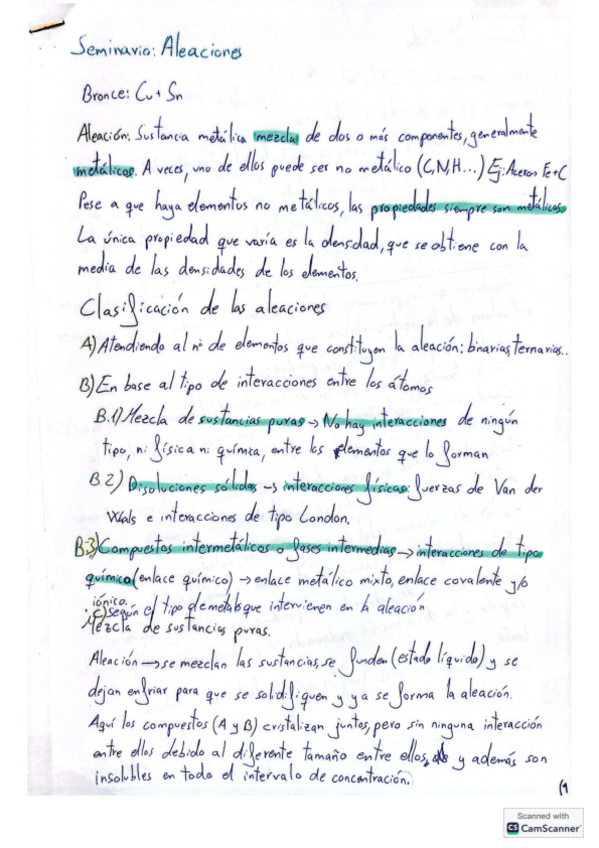 Seminario: Aleaciones
Bronce: Cu + Sn
Aleación: Sustancia metálica mezcla de dos o más componentes, generalmente
metálicos. A veces, uno de ellos puede ser no metálico (C,N,H...) Ej: Aceros Fe+C
Pese a que haya elementos no metálicos, las propiedades siempre son metálicas.
La única propiedad que varía es la densidad, que se obtiene con la
media de las densidades de los elementos.
Clasificación de las aleaciones
A) Atendiendo al nº de elementos que constituyen la aleación: binarias, ternarias..
B) En base al tipo de interacciones entre los átomos
B.1) Mezcla de sustancias puras → No hay interacciones de ningún
tipo, ni física ni química, entre los elementos que lo forman
B.2) Disoluciones sólidas → interacciones físicas: fuerzas de Van der
Wals e interacciones de tipo London.
B.3) Compuestos intermetálicos o fases intermedias → interacciones de tipo
químico (enlace químico) → enlace metálico mixto, enlace covalente y/o
iónico.
C) según el tipo de metal que intervienen en la aleación
Mezcla de sustancias puras.
Aleación → se mezclan las sustancias, se funden (estado líquido) y se
dejan enfriar para que se solidifiquen y ya se forma la aleación.
Aquí los compuestos (A y B) cristalizan juntos, pero sin ninguna interacción
entre ellos debido al diferente tamaño entre ellos, y además son
insolubles en todo el intervalo de concentración.
(1
Scanned with
CS CamScanner